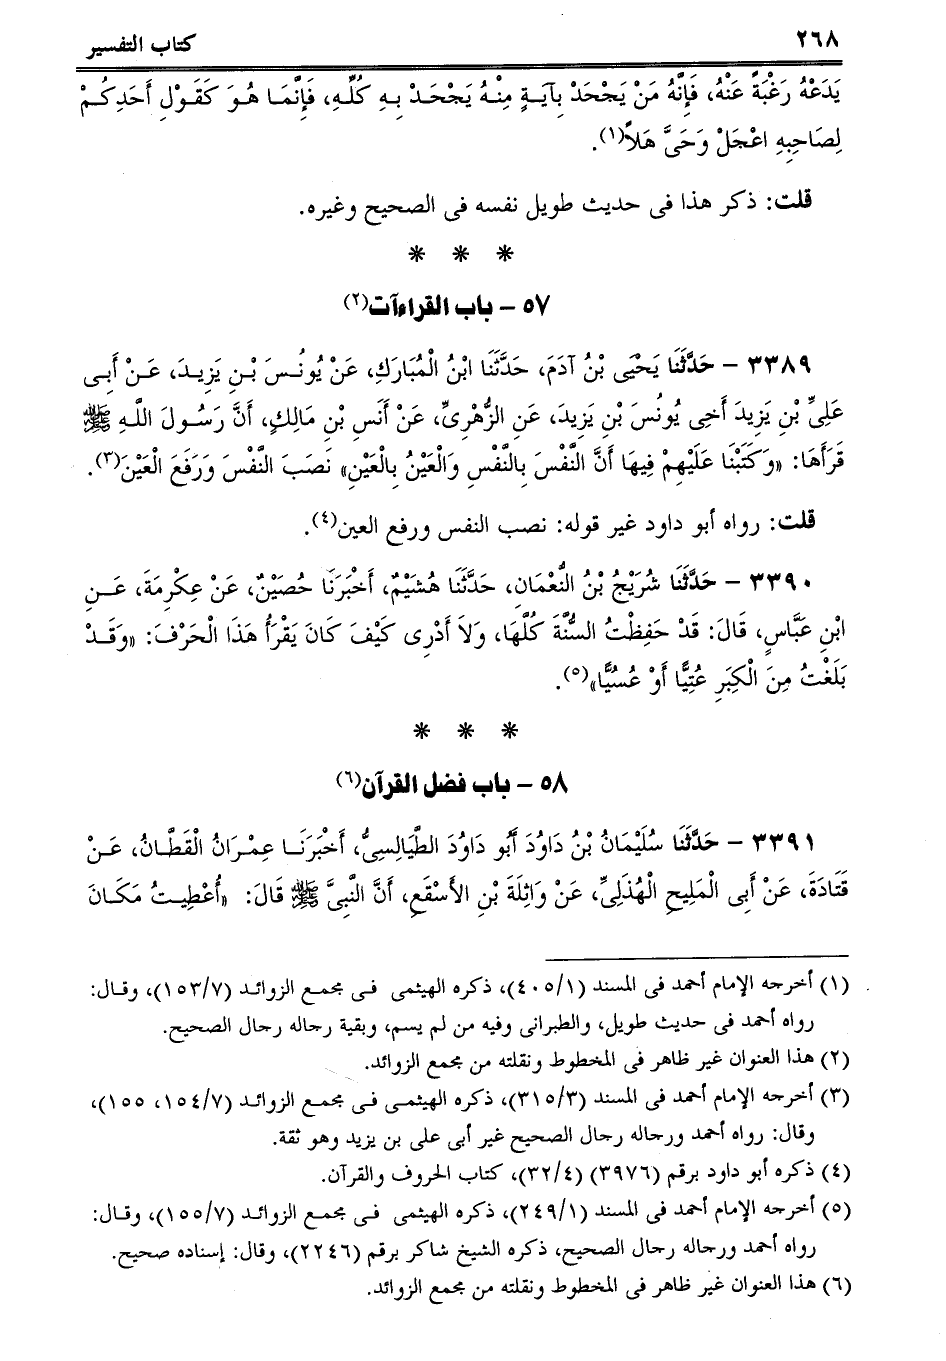 ٢٦٨
كتاب التفسير
يَدَعْهُ رَغْبَةً عَنْهُ، فَإِنَّهُ مَنْ يَجْحَدْ بِآيَةٍ مِنْهُ يَجْحَدْ بِهِ كُلِّهِ، فَإِنَّمَا هُوَ كَقَوْلِ أَحَدِكُمْ
لِصَاحِبِهِ اعْجَلْ وَحَىَّ هَلاً(١).
قلت: ذكر هذا فى حديث طويل نفسه فى الصحيح وغيره.
* * *
٥٧ – باب القراءآت(٢)
٣٣٨٩ – حَدَّثَنَا يَحْيَى بْنُ آدَمَ، حَدَّثَنَا ابْنُ الْمُبَارَكِ، عَنْ يُونُسَ بْنِ يَزِيدَ، عَنْ أَبِى
عَلِىِّ بْنِ يَزِيدَ أَخِى يُونُسَ بْنِ يَزِيدَ، عَنِ الزُّهْرِىِّ، عَنْ أَنَسِ بْنِ مَالِكٍ، أَنَّ رَسُولَ اللَّهِ ﷺ
قَرَأَهَا: «وَكَتَبْنَا عَلَيْهِمْ فِيهَا أَنَّ النَّفْسَ بِالنَّفْسِ وَالْعَيْنُ بِالْعَيْنِ» نَصَبَ النَّفْسَ وَرَفَعَ الْعَيْنَ(٣).
قلت: رواه أبو داود غير قوله: نصب النفس ورفع العين(٤).
٣٣٩٠ – حَدَّثَنَا سُرَيْجُ بْنُ النُّعْمَانِ، حَدَّثَنَا هُشَيْمٌ، أَخْبَرَنَا حُصَيْنٌ، عَنْ عِكْرِمَةَ، عَنِ
ابْنِ عَبَّاسٍ، قَالَ: قَدْ حَفِظْتُ السُّنَّةَ كُلَّهَا، وَلاَ أَدْرِى كَيْفَ كَانَ يَقْرَأُ هَذَا الْحَرْفَ: «وَقَدْ
بَلَغْتُ مِنَ الْكِبَرِ عُتِيًّا أَوْ عُسُيًّا»(٥).
* * *
٥٨ – باب فضل القرآن(٦)
٣٣٩١ – حَدَّثَنَا سُلَيْمَانُ بْنُ دَاوُدَ أَبُو دَاوُدَ الطَّيَالِسِىُّ، أَخْبَرَنَا عِمْرَانُ الْقَطَّانُ، عَنْ
قَتَادَةَ، عَنْ أَبِى الْمَلِيحِ الْهُذَلِىِّ، عَنْ وَاثِلَةَ بْنِ الأَسْقَعِ، أَنَّ النَّبِىَّ ﷺ قَالَ: «أُعْطِيتُ مَكَانَ
(١) أخرجه الإمام أحمد فى المسند (٤٠٥/١)، ذكره الهيثمى فى مجمع الزوائد (١٥٣/٧)، وقال:
رواه أحمد فى حديث طويل، والطبرانى وفيه من لم يسم، وبقية رجاله رجال الصحيح.
(٢) هذا العنوان غير ظاهر فى المخطوط ونقلته من مجمع الزوائد.
(٣) أخرجه الإمام أحمد فى المسند (٣١٥/٣)، ذكره الهيثمى فى مجمع الزوائد (١٥٤/٧، ١٥٥)،
وقال: رواه أحمد ورجاله رجال الصحيح غير أبى على بن يزيد وهو ثقة.
(٤) ذكره أبو داود برقم (٣٩٧٦) (٣٢/٤)، كتاب الحروف والقرآن.
(٥) أخرجه الإمام أحمد فى المسند (٢٤٩/١)، ذكره الهيثمى فى مجمع الزوائد (١٥٥/٧)، وقال:
رواه أحمد ورجاله رجال الصحيح، ذكره الشيخ شاكر برقم (٢٢٤٦)، وقال: إسناده صحيح.
(٦) هذا العنوان غير ظاهر فى المخطوط ونقلته من مجمع الزوائد.